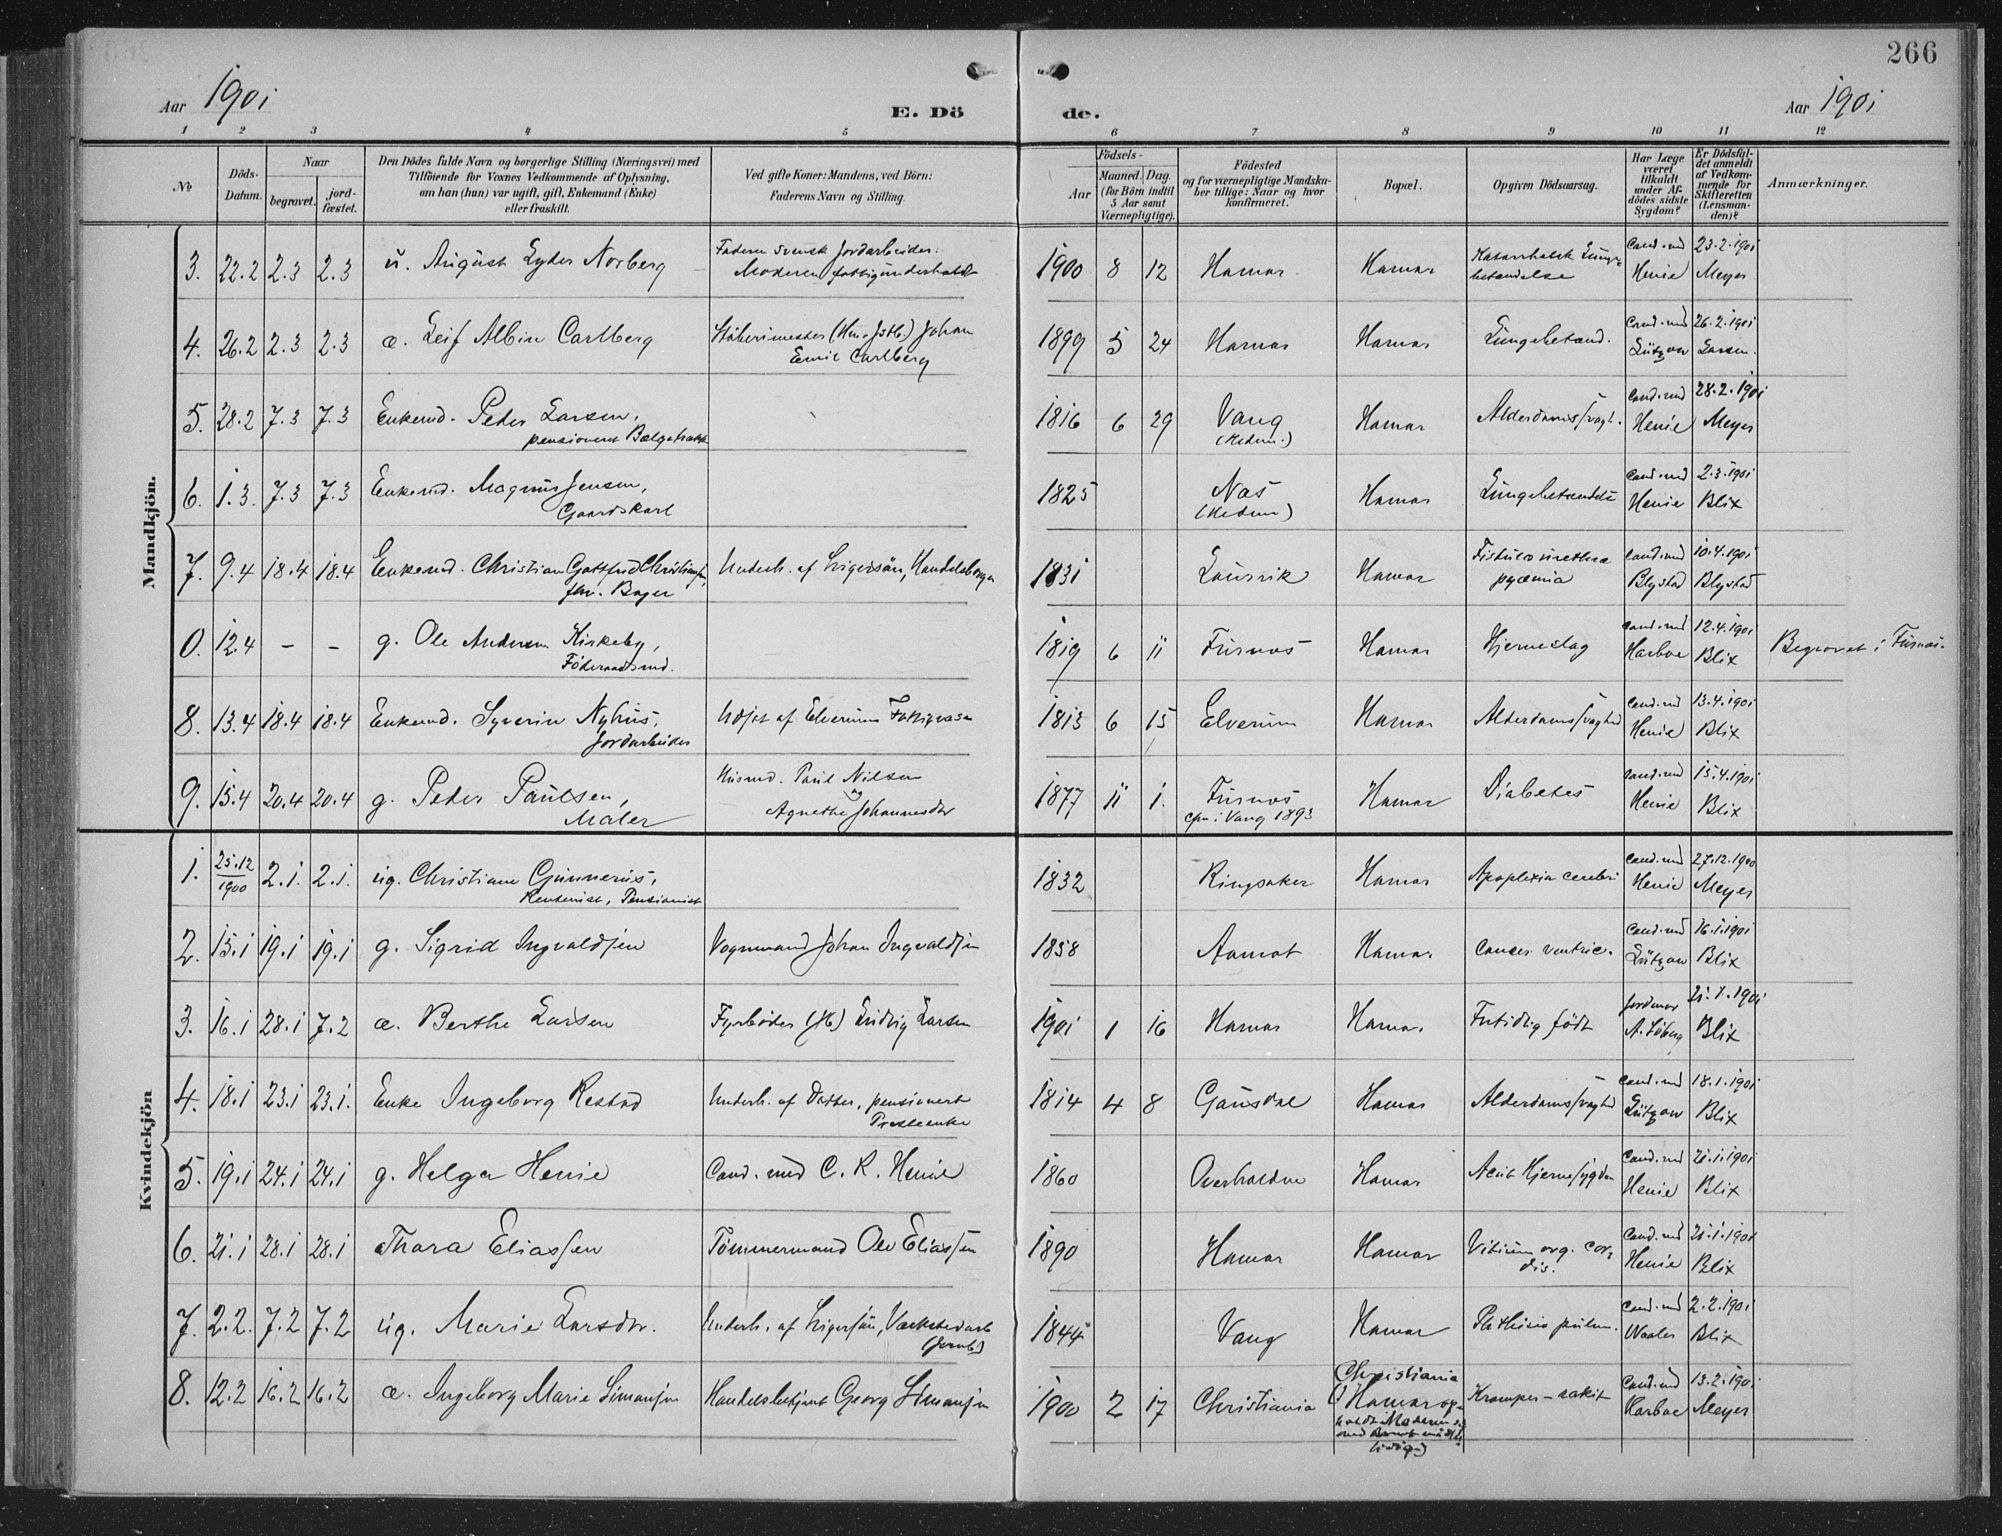 266
Aar 1901
E. Dö
de.
Aar 1901
1 2 3 4 5 6 7 8 9 10 11 12
No
Döds-
Datum.
Naar
begravet.
jord-
fæstet.
Den Dödes fulde Navn og borgerlige Stilling (Næringsvei) med
Tilföiende for Voxnes Vedkommende af Oplysning,
om han (hun) var ugift, gift, Enkemand (Enke)
eller fraskilt.
Ved gifte Koner: Mandens, ved Börn:
Faderens Navn og Stilling.
Födsels-
Aar
Maaned. Dag.
(for Börn indtil
5 Aar samt
Værnepligtige).
Födested
og for værnepligtige Mandska-
ber tillige: Naar og hvor
konfirmeret.
Bopæl.
Opgiven Dödsaarsag.
Har Læge
været
tilkaldt
under Af-
dödes sidste
Sygdom?
Er Dödsfal-
det anmeldt
af Vedkom-
mende for
Skifteretten
(Lensman-
den)?
Anmærkninger.
Mandkjön.
3. 22.2 2.3 2.3 u. August Lyder Norberg Faderen svensk Jordarbeider. 1900 8 12 Hamar Hamar Katarrhalsk Lunge- Cand. med 23.2.1901
Moderen fattigunderholdt betændelse Henie Meyer
4. 26.2 2.3 2.3 æ. Leif Albin Carlberg Støberimester (Ham. Jstb.) Johan 1899 5 24 Hamar Hamar Lungebetænd. Cand. med 26.2.1901
Emil Carlberg Lützow Larsen.
5. 28.2 7.3 7.3 Enkemd. Peder Larsen, 1816 6 29 Vang Hamar Alderdomssvagh. Cand. med 28.2.1901
pensioneret (Hedem.) Henie Meyer
6. 1.3. 7.3 7.3 Enkemd. Magnus Jensen, 1825 Næs Hamar Lungebetændelse Cand. med 2.3.1901
Gaardskarl (Hedem) Henie Blix
7. 9.4 18.4 18.4 Enkemd. Christian Gottfred Christiansen, Underh. af Svigersøn, Handelsborger 1831 Laurvik Hamar Fistula urethra Cand. med 10.4.1901
fhv. Bager pyæmia Blystad Blystad
0. 12.4 - - g. Ole Andersen Kirkeby, 1819 6 11 Furnes Hamar Hjerneslag Cand. med 12.4.1901 Begravet i Furnes.
Föderaadsmd. Harboe Blix
8. 13.4 18.4 18.4 Enkemd. Syverin Nyhus, Udsat af Elverums Fattigvæsen 1813 6 15 Elverum Hamar Alderdomssvaghed Cand. med 13.4.1901
Jordarbeider Henie Blix
9. 15.4 20.4 20.4 g. Peder Paulsen, Husmd. Paul Nilsen 1877 11 1. Furnes Hamar Diabetes Cand. med 15.4.1901
Maler og Agnethe Johannesdtr cfm. i Vang 1893 Henie Blix
Kvindekjön
1. 25.12 1900 2.1. 2.1. ug. Christiane Gunnerus, 1832 Ringsaker Hamar Apoplexia cerebri Cand. med 27.12.1900
Rentenist, Pensionist Henie Meyer
2. 15.1 19.1 19.1 g. Sigrid Ingvaldsen Vognmand Johan Ingvaldsen 1858 Aamot Hamar Cancer ventric. Cand. med 16.1.1901
Lützow Blix
3. 16.1 28.1 7.2 æ. Berthe Larsen Fyrbøder (Jb) Ludvig Larsen 1901 1 16 Hamar Hamar Futidlig født Jordmor 21.1.1901
A. Soberg Blix
4. 18.1 23.1 23.1. Enke Ingeborg Restad Underh. af Datter, pensioneret 1814 4 8 Gausdal Hamar Alderdomssvaghed Cand. med 18.1.1901
Presteenke Lützow Blix
5. 19.1 24.1 24.1 g. Helga Henie Cand. med C. R. Henie 1860 Overhalden Hamar Acut Hjernesygdom Cand. med 21.1.1901
Henie Blix
6. 21.1 28.1 28.1 Thora Eliassen Tömmermand Ole Eliassen 1890 Hamar Hamar Vitium org. cor- Cand. med 21.1.1901
dis. Henie Blix
7. 2.2. 7.2 7.2 ug. Marie Larsdtr. Underh. af Svigersøn, Værkstedarb 1844 Vang Hamar Phthisis pulm. Cand. med 2.2.1901
(Jernb) Waaler Blix
8. 12.2 16.2 16.2 æ. Ingeborg Marie Simonsen Handelsbetjent Georg Simonsen 1900 2 17 Christiania Christiania Kramper - rakit Cand. med 13.2.1901
(I Hamar op- Harboe Meyer
holdt Moderen sig
med Barnet midler-
tidig)